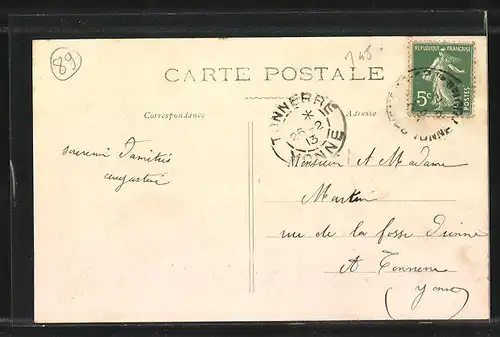 89
CARTE POSTALE
RÉPUBLIQUE FRANÇAISE
5c
POSTES
Correspondance
Adresse
TONNERRE
*
26-2
13
YONNE
souvenir d'amitiés
Augustine
Monsieur et Madame
Martin
rue de la fosse Dionne
A Tonnerre
(Yonne)